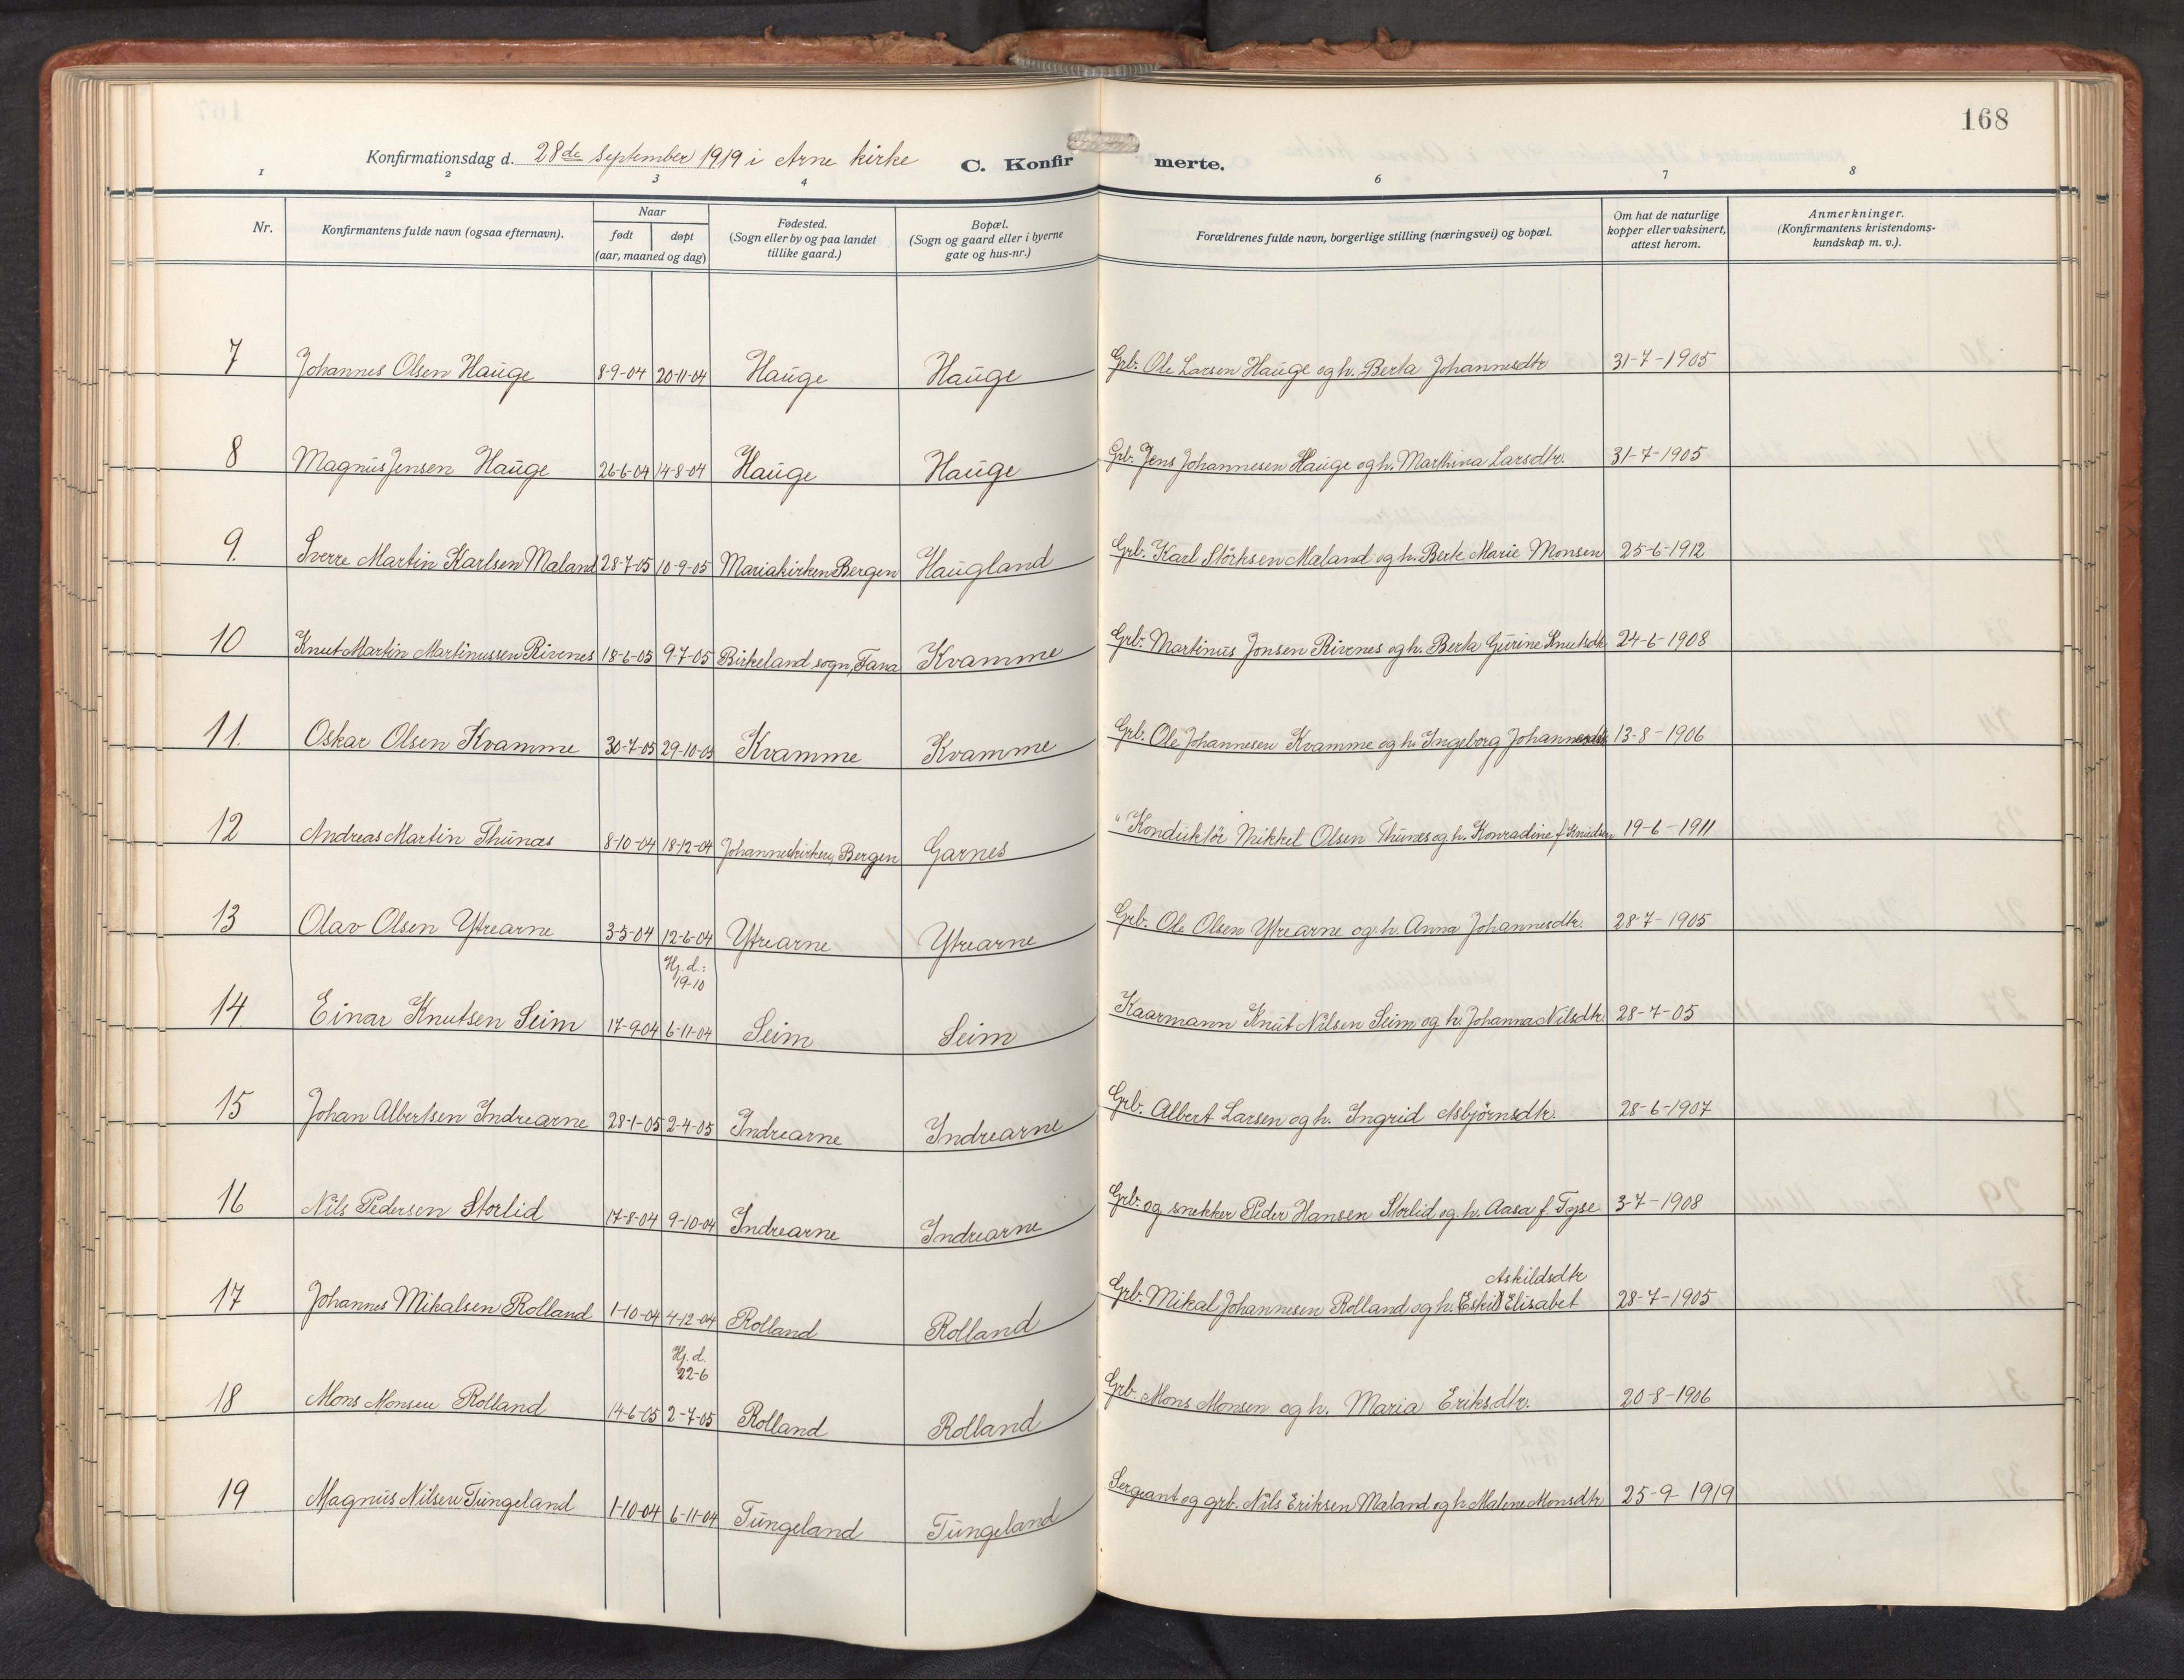 168
Konfirmationsdag d. 28de september 1919 i Arne kirke C. Konfirmerte.
1 2 3 4 6 7 8
Nr. Konfirmantens fulde navn (ogsaa efternavn). Naar født døpt (aar, maaned og dag) Fødested. (Sogn eller by og paa landet tillike gaard.) Bopæl. (Sogn og gaard eller i byerne gate og hus-nr.) Forældrenes fulde navn, borgerlige stilling (næringsvei) og bopæl. Om hat de naturlige kopper eller vaksinert, attest herom. Anmerkninger. (Konfirmantens kristendoms-kundskap m. v.).
7 Johannes Olsen Hauge 8-9-04 20-11-04 Hauge Hauge Grb. Ole Larsen Hauge og h. Berta Johannesdtr 31-7-1905
8 Magnus Jensen Hauge 26-6-04 14-8-04 Hauge Hauge Grb. Jens Johannesen Hauge og h. Marthina Larsdtr. 31-7-1905
9. Sverre Martin Karlsen Maland 28-7-05 10-9-05 Mariakirken Bergen Haugland Grb. Karl Störksen Maland og h. Berte Marie Monsen 25-6-1912
10 Knut Martin Martinussen Rivenes 18-6-05 9-7-05 Birkeland sogn, Fana Kvamme Grb. Martinus Jonsen Rivenes og h. Berta Gurine Knutsdtr 24-6-1908
11. Oskar Olsen Kvamme 30-7-05 29-10-05 Kvamme Kvamme Grb. Ole Johannesen Kvamme og h. Ingeborg Johannesdtr 13-8-1906
12 Andreas Martin Thunæs 8-10-04 18-12-04 Johanneskirken, Bergen Garnes Konduktör Mikkel Olsen Thunes og h. Konradine f. Knudsen 19-6-1911
13 Olav Olsen Ytrearne 3-5-04 12-6-04 Ytrearne Ytrearne Grb. Ole Olsen Ytrearne og h. Anna Johannesdtr. 28-7-1905
Hj. d.:
19-10
14. Einar Knutsen Seim 17-9-04 6-11-04 Seim Seim Kaarmann Knut Nilsen Seim og h. Johanna Nilsdtr. 28-7-05
15 Johan Albertsen Indrearne 28-1-05 2-4-05 Indrearne Indrearne Grb. Albert Larsen og h. Ingrid Asbjörnsdtr. 28-6-1907
16 Nils Pedersen Storlid 17-8-04 9-10-04 Indrearne Indrearne Grb. og snekker Peder Hansen Storlid og h. Aasa f. Tyse 3-7-1908
Askildsdtr
17 Johannes Mikalsen Rolland 1-10-04 4-12-04 Rolland Rolland Grb. Mikal Johannesen Rolland og h. Elisabet 28-7-1905
Hj. d.
22-6
18 Mons Monsen Rolland 14-6-05 2-7-05 Rolland Rolland Grb. Mons Monsen og h. Maria Eriksdtr. 20-8-1906
19 Magnus Nilsen Tungeland 1-10-04 6-11-04 Tungeland Tungeland Sergeant og grb. Nils Eriksen Maland og h. Malene Monsdtr 25-9-1919